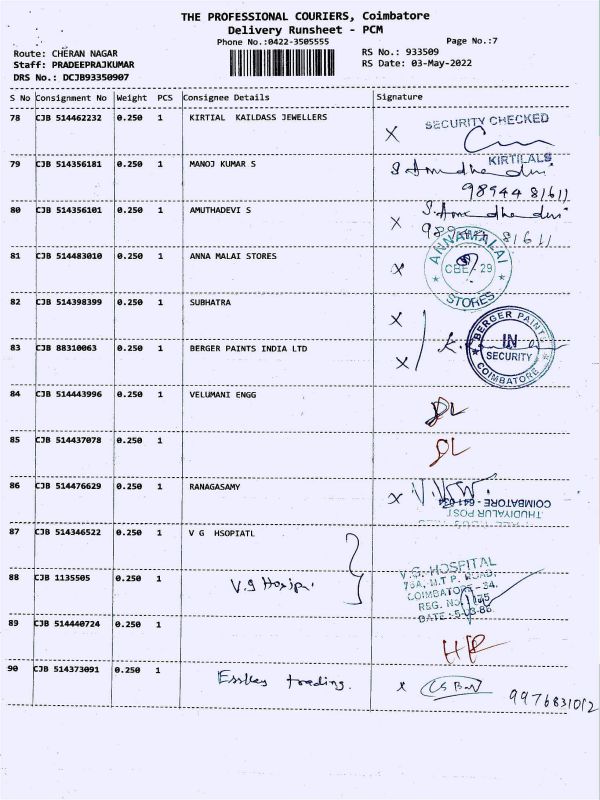 THE PROFESSIONAL COURIERS, Coimbatore
Delivery Runsheet - PCM
Phone No.:0422-3505555
Page No.:7
Route: CHERAN NAGAR
RS No.: 933509
Staff: PRADEEPRAJKUMAR
RS Date: 03-May-2022
DRS No.: DCJB93350907
S No Consignment No Weight PCS Consignee Details Signature
78 CJB 514462232 0.250 1 KIRTIAL KAILDASS JEWELLERS
SECURITY CHECKED
X
KIRTILALS
79 CJB 514356181 0.250 1 MANOJ KUMAR S
98944 81611
80 CJB 514356101 0.250 1 AMUTHADEVI S
X
81611
81 CJB 514483010 0.250 1 ANNA MALAI STORES
X
ANNAMALAI
CBE - 29
STORES
82 CJB 514398399 0.250 1 SUBHATRA
X
83 CJB 88310063 0.250 1 BERGER PAINTS INDIA LTD
X
BERGER PAINTS
IN
SECURITY
COIMBATORE
84 CJB 514443996 0.250 1 VELUMANI ENGG
DL
85 CJB 514437078 0.250 1
DL
86 CJB 514476629 0.250 1 RANAGASAMY
X
COIMBATORE - 641 034
THUDIYALUR POST
87 CJB 514346522 0.250 1 V G HSOPIATL
88 CJB 1135505 0.250 1
V.G. HOSPITAL
M.T.P. ROAD,
COIMBATORE-34.
REG. NO.
DATE:
89 CJB 514440724 0.250 1
HR
90 CJB 514373091 0.250 1 Esskey trading.
X
9976831012